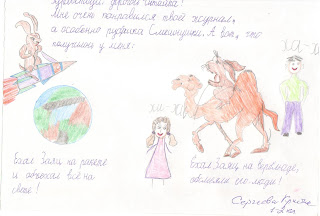 Здравствуй, дорогой читайка!
Мне очень понравился твой журнал,
а особенно рубрика Слагалушки. А вот, что
получилось у меня:
ха-ха
ха-ха
Ехал Заяц на ракете
и объехал всё на
свете!
Ехал Заяц на верблюде,
обсмеяли его люди!
Сергеева
1-2 кл